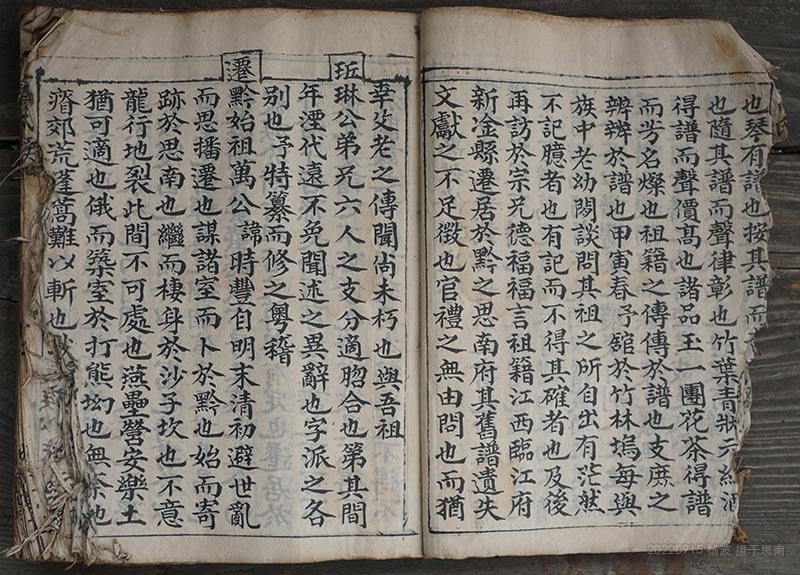 也琴有譜也按其譜而
也隨其譜而聲律彰也竹葉青狀元紅酒
得譜而聲價高也諸品玉一團花茶得譜
而芳名燦也祖籍之傳傳於譜也支庶之
辨辨於譜也甲寅春予舘於竹林塢每與
族中老幼閑談問其祖之所自出有茫然
不記臆者也有記而不得其確者也及後
再訪於宗兄德福福言祖籍江西臨江府
新淦縣遷居於黔之思南府其舊譜遺失
文獻之不足徵也官禮之無由問也而猶
幸父老之傳聞尚未朽也與吾祖
珎琳公弟兄六人之支分適脗合也第其間
年湮代遠不免聞述之異辭也字派之各
別也予特纂而修之粵稽
遷黔始祖萬公諱時豐自明末清初避世亂
而思播遷也謀諸室而卜於黔也始而寄
跡於思南也繼而棲身於沙子坎也不意
龍行地裂此間不可處也燕壘營安樂土
猶可適也俄而築室於打熊坳也無奈地
瘠郊荒蓬蒿難以斬也
20220915 杨波 摄于思南